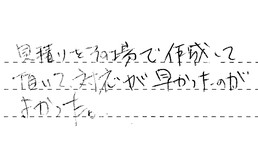 見積りをその場で作成して
頂いて対応が早かったのが
よかった。